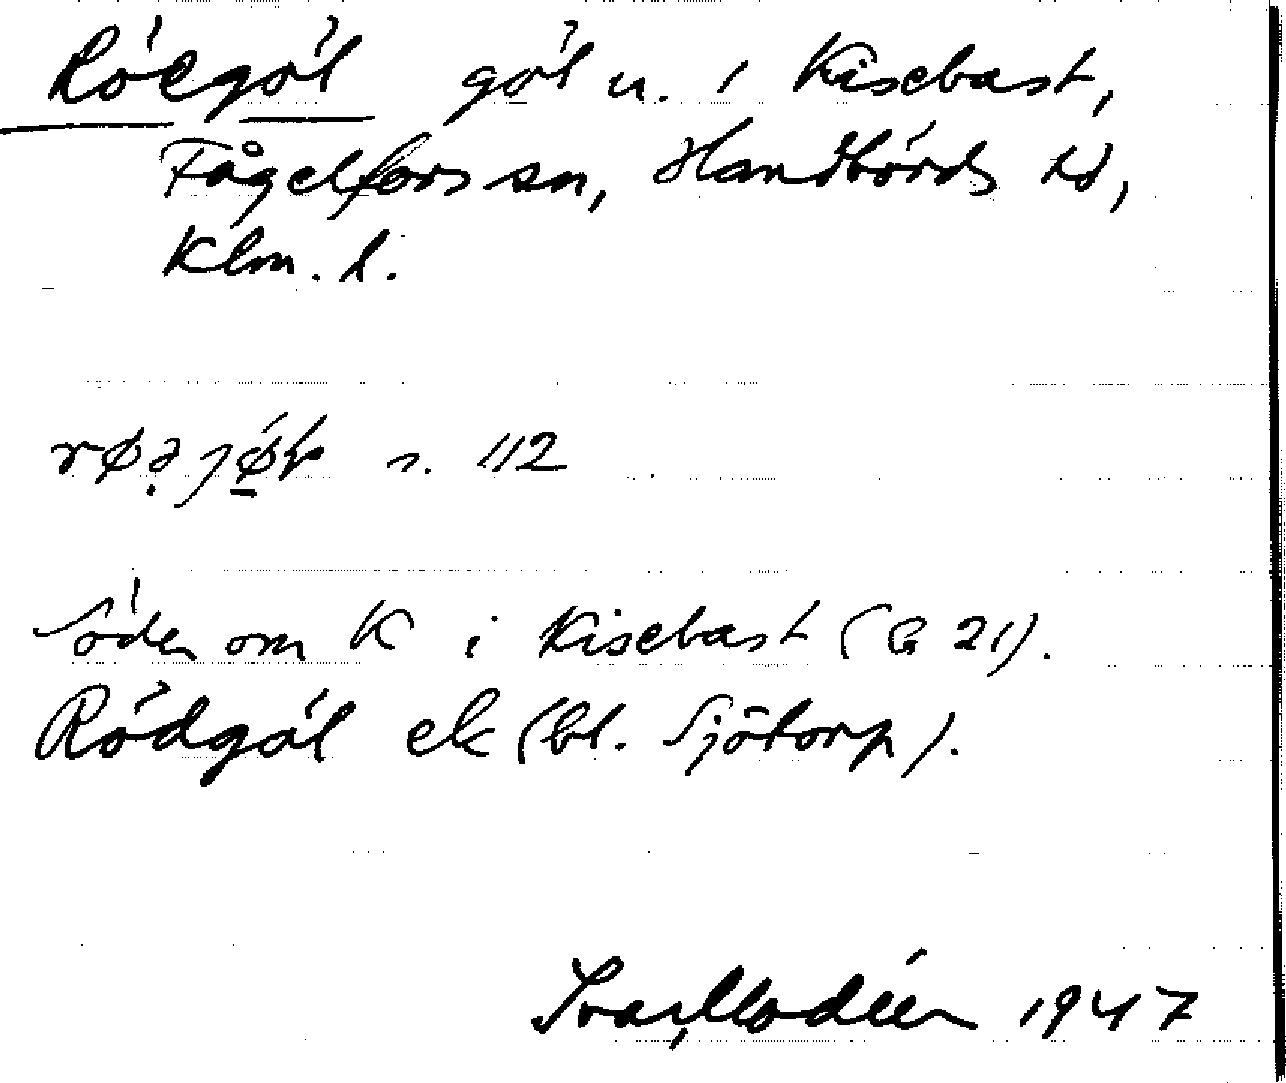 Röegöl göl n. i Kisebast,
Fågelfors sn, Handbörds hd,
Klm. l.
112
Söder om K i Kisebast (B 21).
Rödgöl ek (bl. Sjötorp).
Ivar Modéer 1947